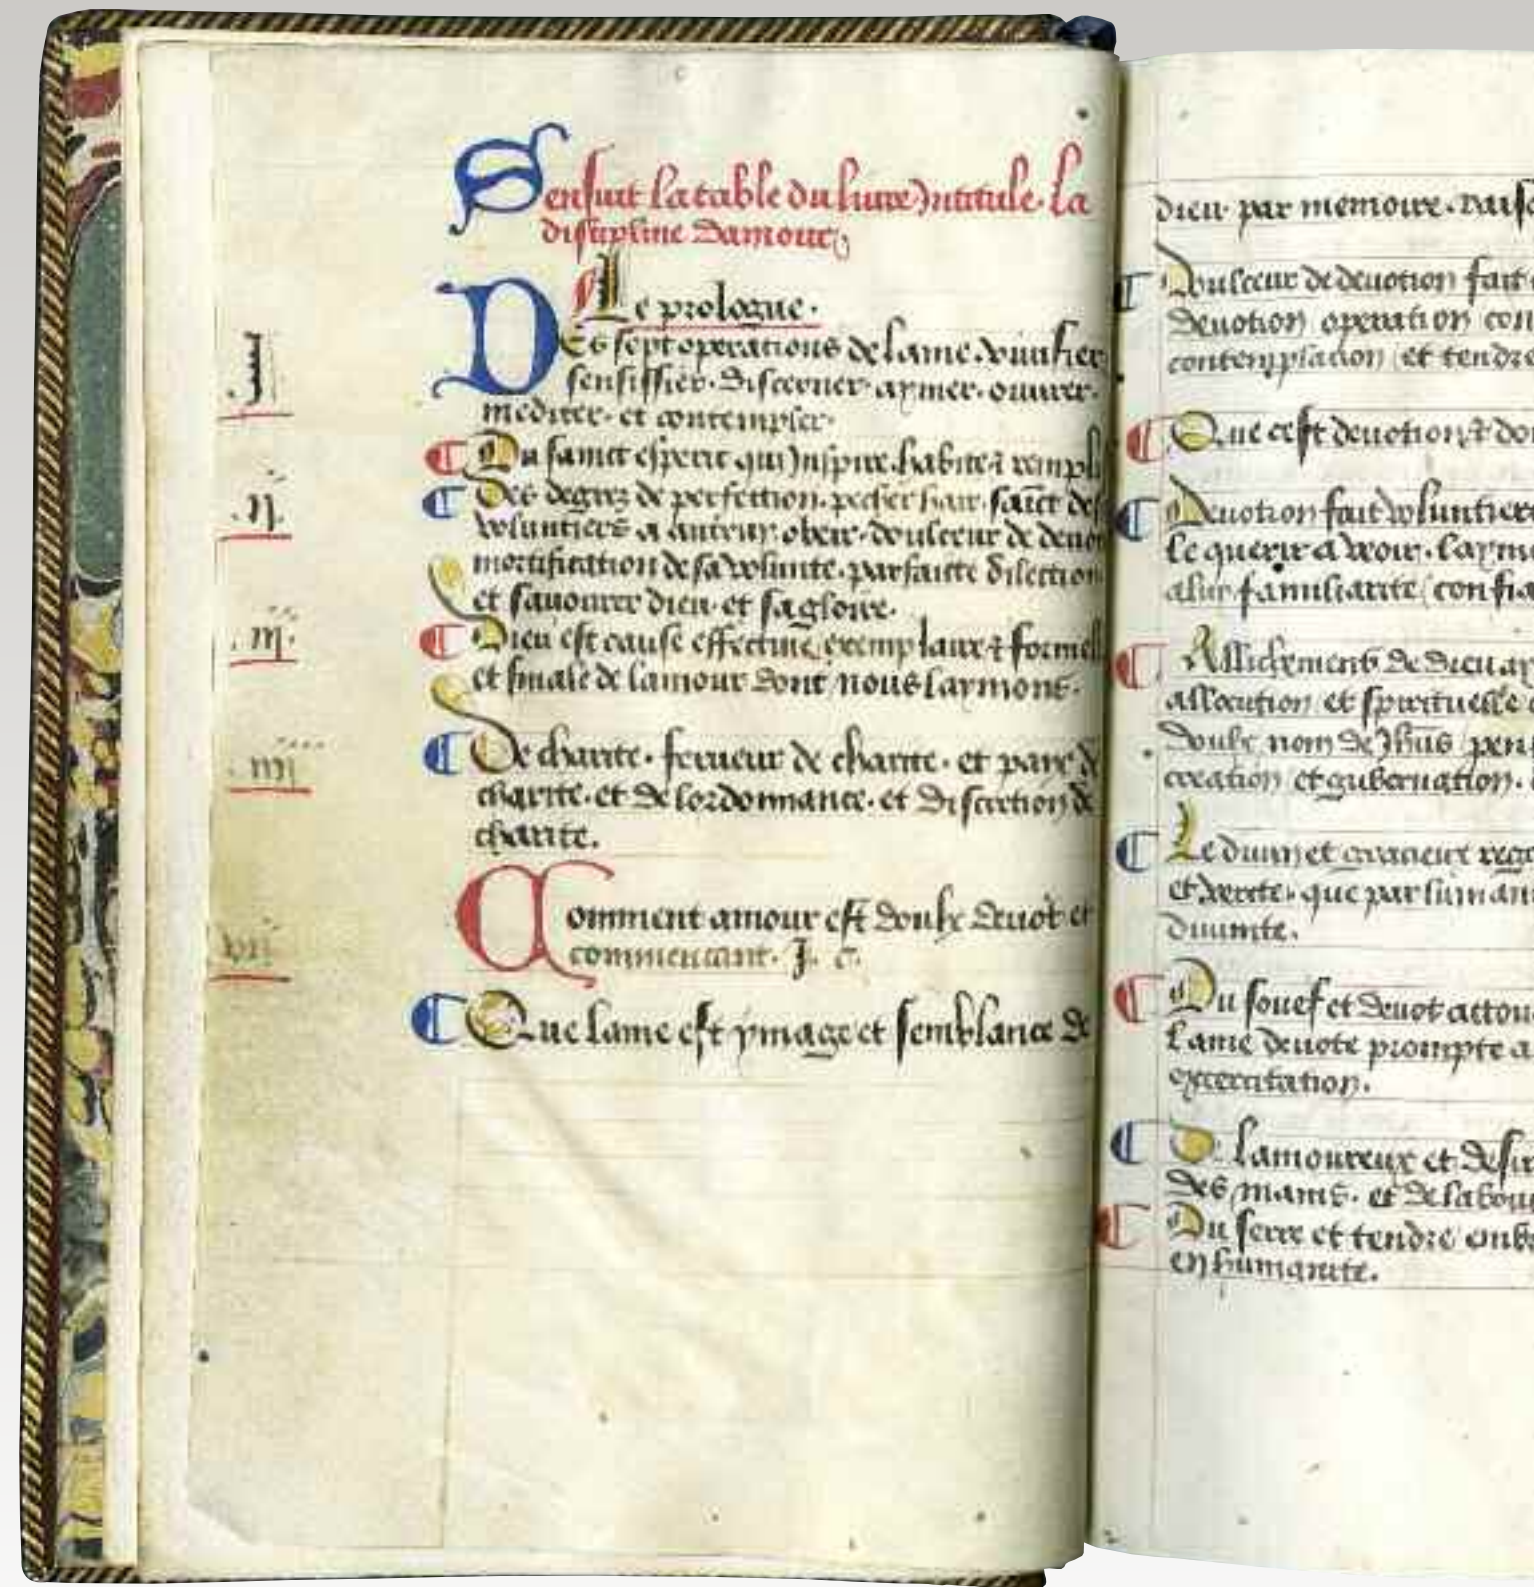 Sensuit la table du livre Intitule. la
discipline damour
Le prologue.
.I.
DEs sept operations de lame. vivifier
sensiffier. discerner. aymer. ouvrer.
mediter. et contempler.
.ii.
Du sainct esperit qui Inspire. habite ⁊ rempli
Des degrez de perfection. pechez hair. sainct
voluntiers a autruy obeir. doulceur de devo
mortification de sa volunte. parfaicte dilection
et savourer dieu. et sa gloire.
.iii.
Dieu est cause effective exemplaire ⁊ formell
et finale de lamour dont nous laymons.
.iiii.
De charite. ferveur de charite. et paix de
charite. et de lordonnance. et discretion de
charite.
.vii.
Comment amour est double devot et
commencant. I. c.
Que lame est ymage et semblance de
dieu par memoire. rais
Doulceur de devotion fait
devotion operation con
contemplacion et tendre
Que cest devotion ⁊ do
Devotion fait voluntiers
le querir a veoir. laym
familiarite confia
Allichemens de dieu ay
allocution et spirituelle
doulx nom de Jhus pen
creation et gubernation.
Le divin et gracieux reg
et verite. que par lumani
divinite.
Du souef et devot attou
lame devote prompte a
excercitation.
D. lamoureux et desir
des mains. et de labou
Du serre et tendre emb
en humanite.